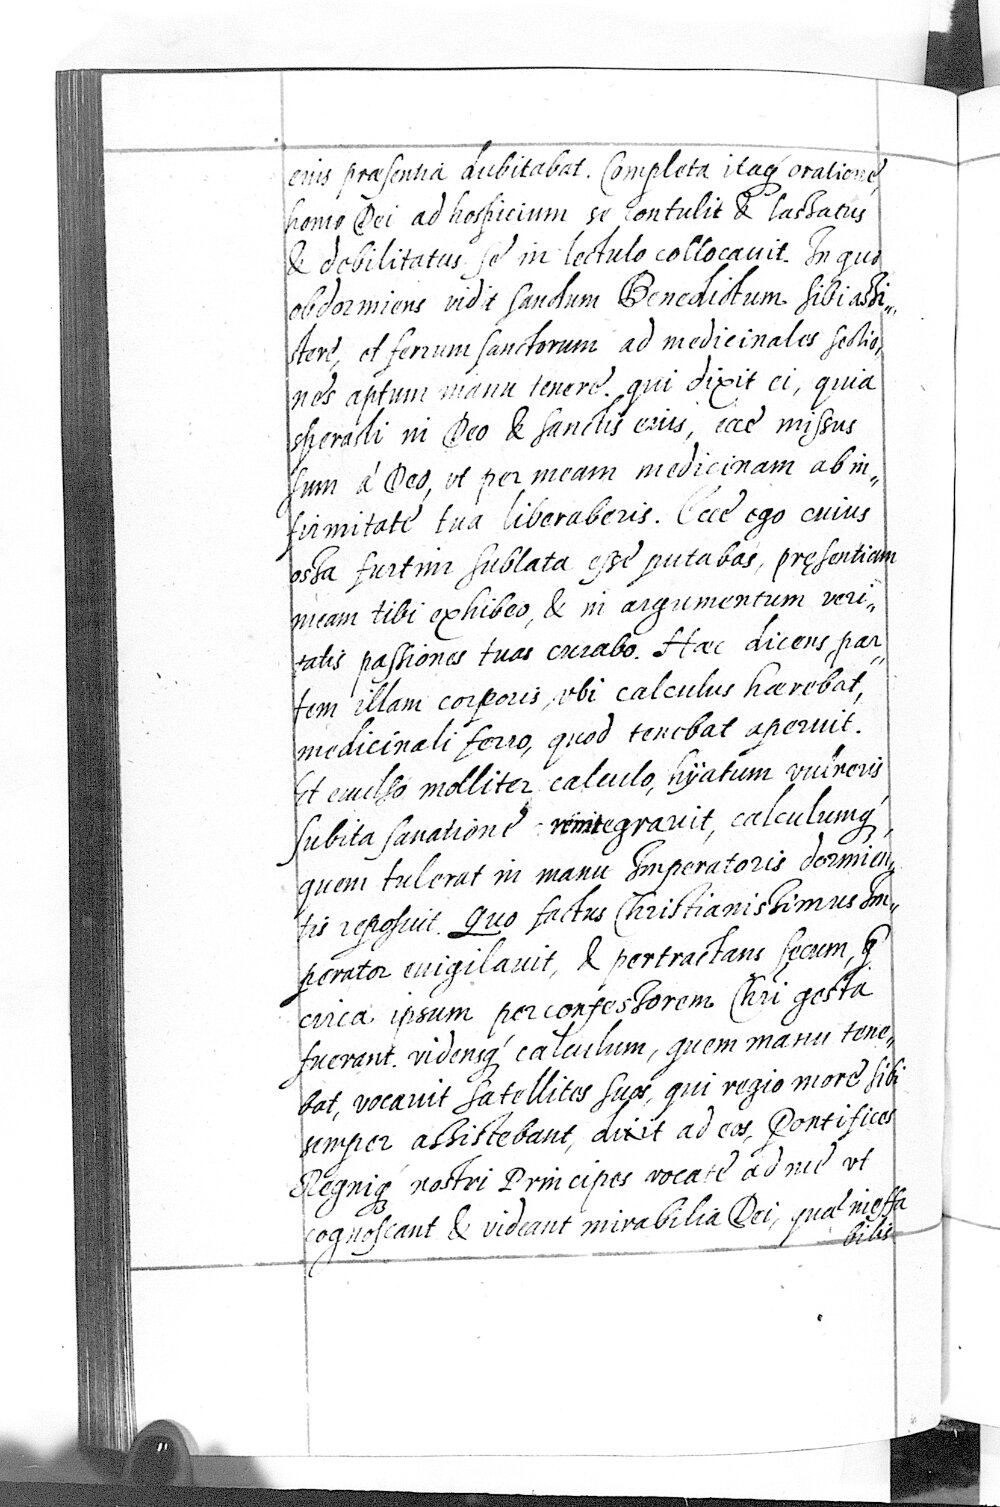 eius præsentia dubitabat. Completa itaq́ oratione,
homo Dei ad hospicium se contulit & lassatus
& debilitatus se in lectulo collocauit. In quo
obdormiens vidit sanctum Benedictum sibi assi„
stere, et ferrum sanctorum ad medicinales sectio„
nes aptum manu tenere. qui dixit ei, quia
sperasti in Deo & sanctis eius, ecce missus
sum á Deo, vt per meam medicinam ab in„
firmitate tua liberaberis. Ecce ego cuius
ossa furtim sublata esse putabas, pręsentiam
meam tibi exhibeo, & in argumentum veri„
tatis passiones tuas curabo. Hæc dicens, par„
tem illam corporis, vbi calculus hærebat,
medicinali ferro, quod tenebat aperuit.
Et euulso molliter calculo, hÿatum vulneris
subita sanatione reintegrauit, calculumq́,
quem tulerat in manu Imperatoris dormien„
tis reposuit. Quo factus Christianissimus Im„
perator euigilauit, & pertractans secum, q̃
circa ipsum per confessorem Chri gesta
fuerant. vidensq́ calculum, quem manu tene„
bat, vocauit satellites suos, qui regio more sibi
semper assistebant, dixit ad eos, Pontifices
Regniq́ nostri Principes vocate ad me vt
cognoscant & videant mirabilia Dei, quæ ineffa
bilis